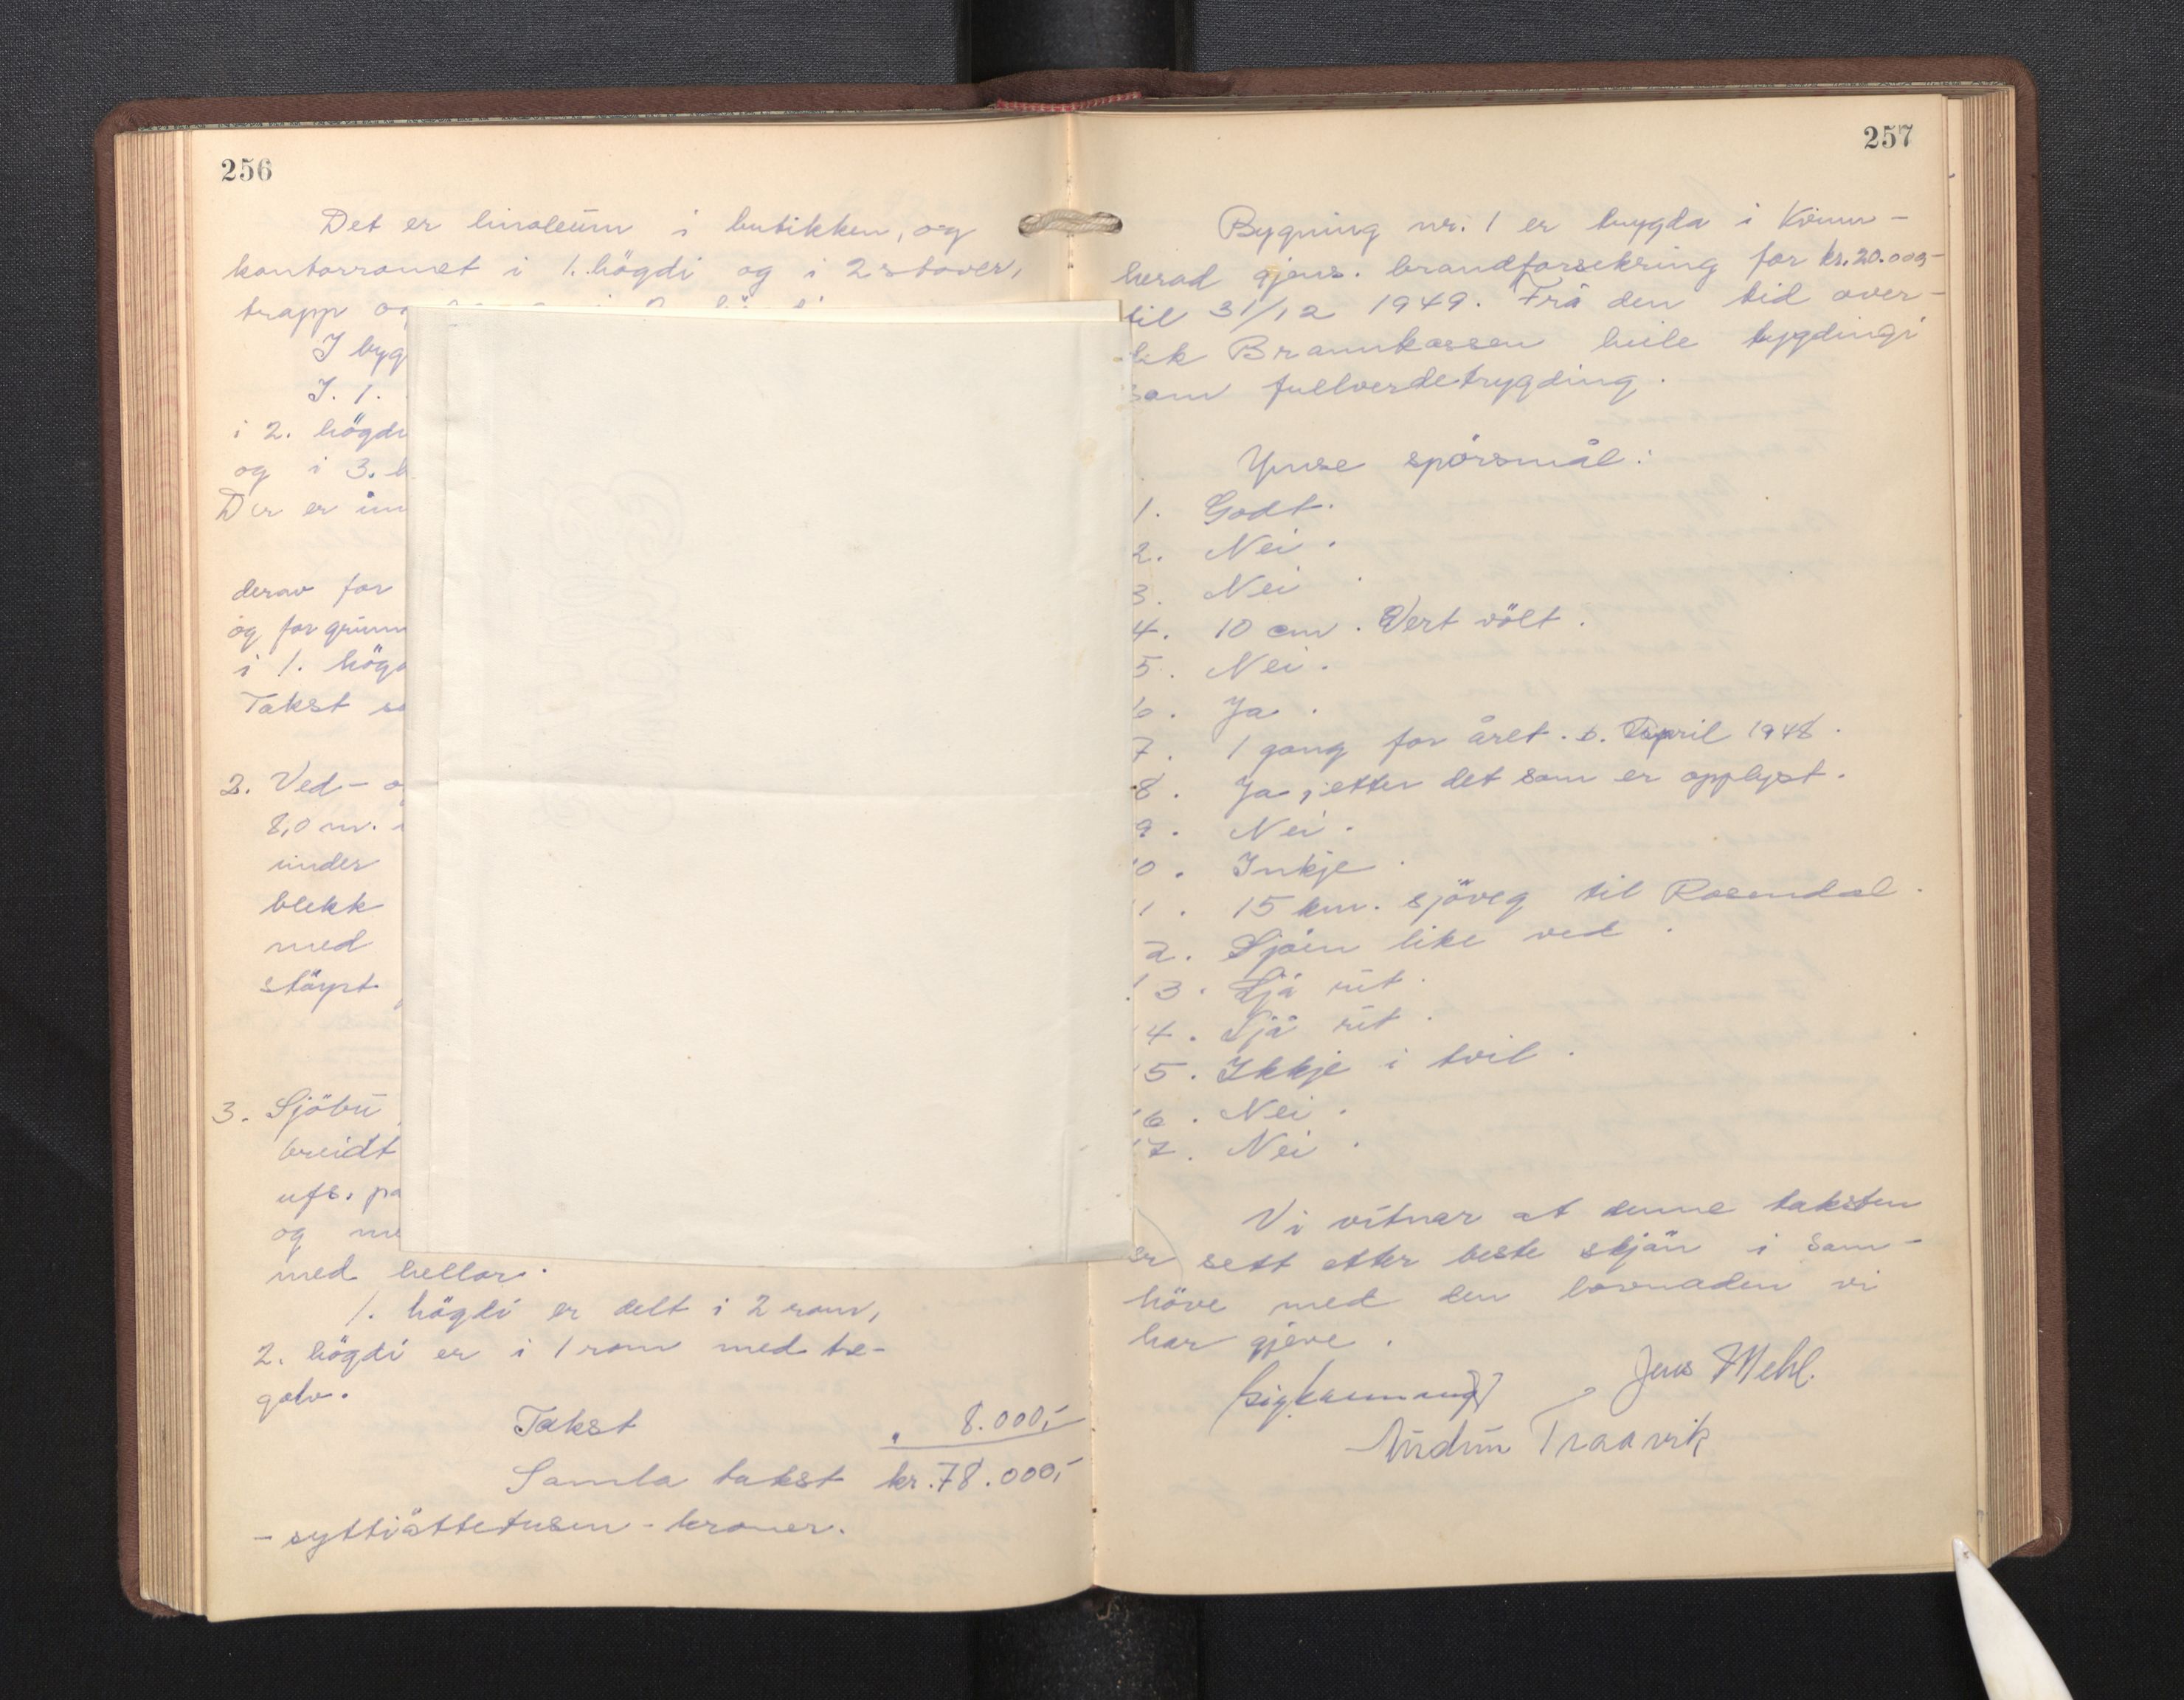 256
Det er linoleum i butikken, og
kontorromet i 1. högdi og i 2 stover,
trapp
I byg
I. 1.
i 2. högdi
og i 3.
Der er
derav for
og for grunn
i 1. högd
Takst
2. Ved-
8,0 m.
under
blekk
med
stöypt
3. Sjöbu
breidt
ufs. på
og
med hellor.
1. högdi er delt i 2 rom,
2. högdi er i 1 rom med tre-
golv.
Takst " 8.000,-
Samla takst kr. 78.000,-
- syttiåttetusen - kroner.
257
Bygning nr. 1 er trygda i Kvinn-
herad gjens. brandforsekring for kr. 20.000,-
til 31/12 1949. Frå den tid over-
tek Brannkassen heile trygdingi
som fullverdetrygding.
Ymse spörsmål:
1. Godt.
2. Nei.
3. Nei
4. 10 cm. Vert völt.
5. Nei.
6. Ja.
7. 1 gong for året. 6. April 1948.
8. Ja, etter det som er opplyst.
9. Nei.
10. Inkje.
11. 15 km. sjöveg til Rosendal.
2. Sjöen like ved.
13. Sjå rit.
14. Sjå rit.
15. Ikkje i tvil.
16. Nei.
17. Nei.
Vi vitnar at denne taksten
er sett etter beste skjön i sam-
höve med den lovnaden vi
har gjeve.
Jens Mehl.
Audun Traavik